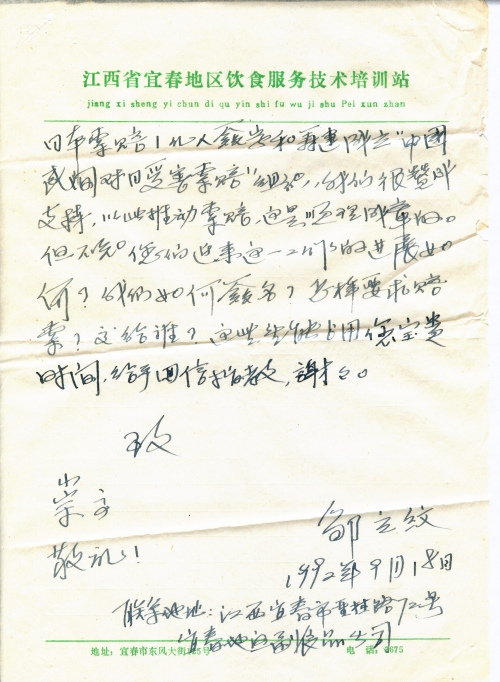 江西省宜春地区饮食服务技术培训站
jiang xi sheng yi chun di qu yin shi fu wu ji shu Pei xun zhan
日本索赔1亿人签名和再建成立"中国
民间对日受害索赔"组织，我们很赞成
支持，以此推动索赔，这是顺理成章的。
但不知您们近来这一工作的进展如
何？我们如何签名？怎样要求赔
索？交给谁？这些占用您宝贵
时间，给予回信指教，谢谢。
致
崇高
敬礼！
邹立纹
1992年9月18日
联系地址：江西宜春市重桂路72号
宜春地区副食品公司
地址：宜春市东风大街 5号
电 话： 6675